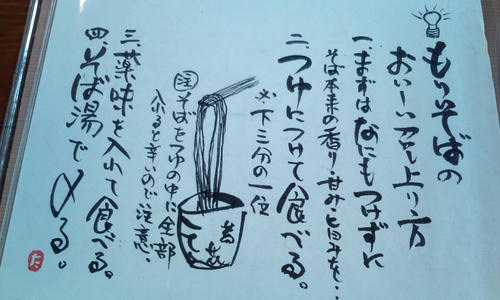 もりそばの
おいしい召し上り方
一、まずはなにもつけずに
そば本来の香り・甘み・旨みを…
二、つけにつけて食べる。
※下三分の一位
㊟そばをつゆの中に全部
入れると辛いので注意。
三、薬味を入れて食べる。
四、そば湯で〆る。
た